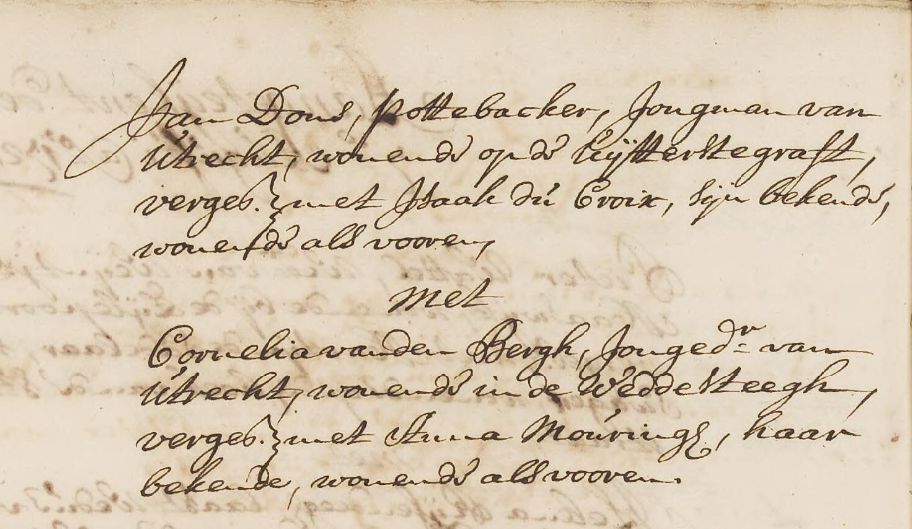 Jan Dons, pottebacker, Jongman van
Utrecht, wonende op de Uijtterstegraft,
verges. met Isaak du Croix, sijn bekende,
wonende als vooren,
met
Cornelia vanden Bergh, Jongedr. van
Utrecht, wonende in de Weddesteegh,
verges. met Anna Mourings, haar
bekende, wonende als vooren.